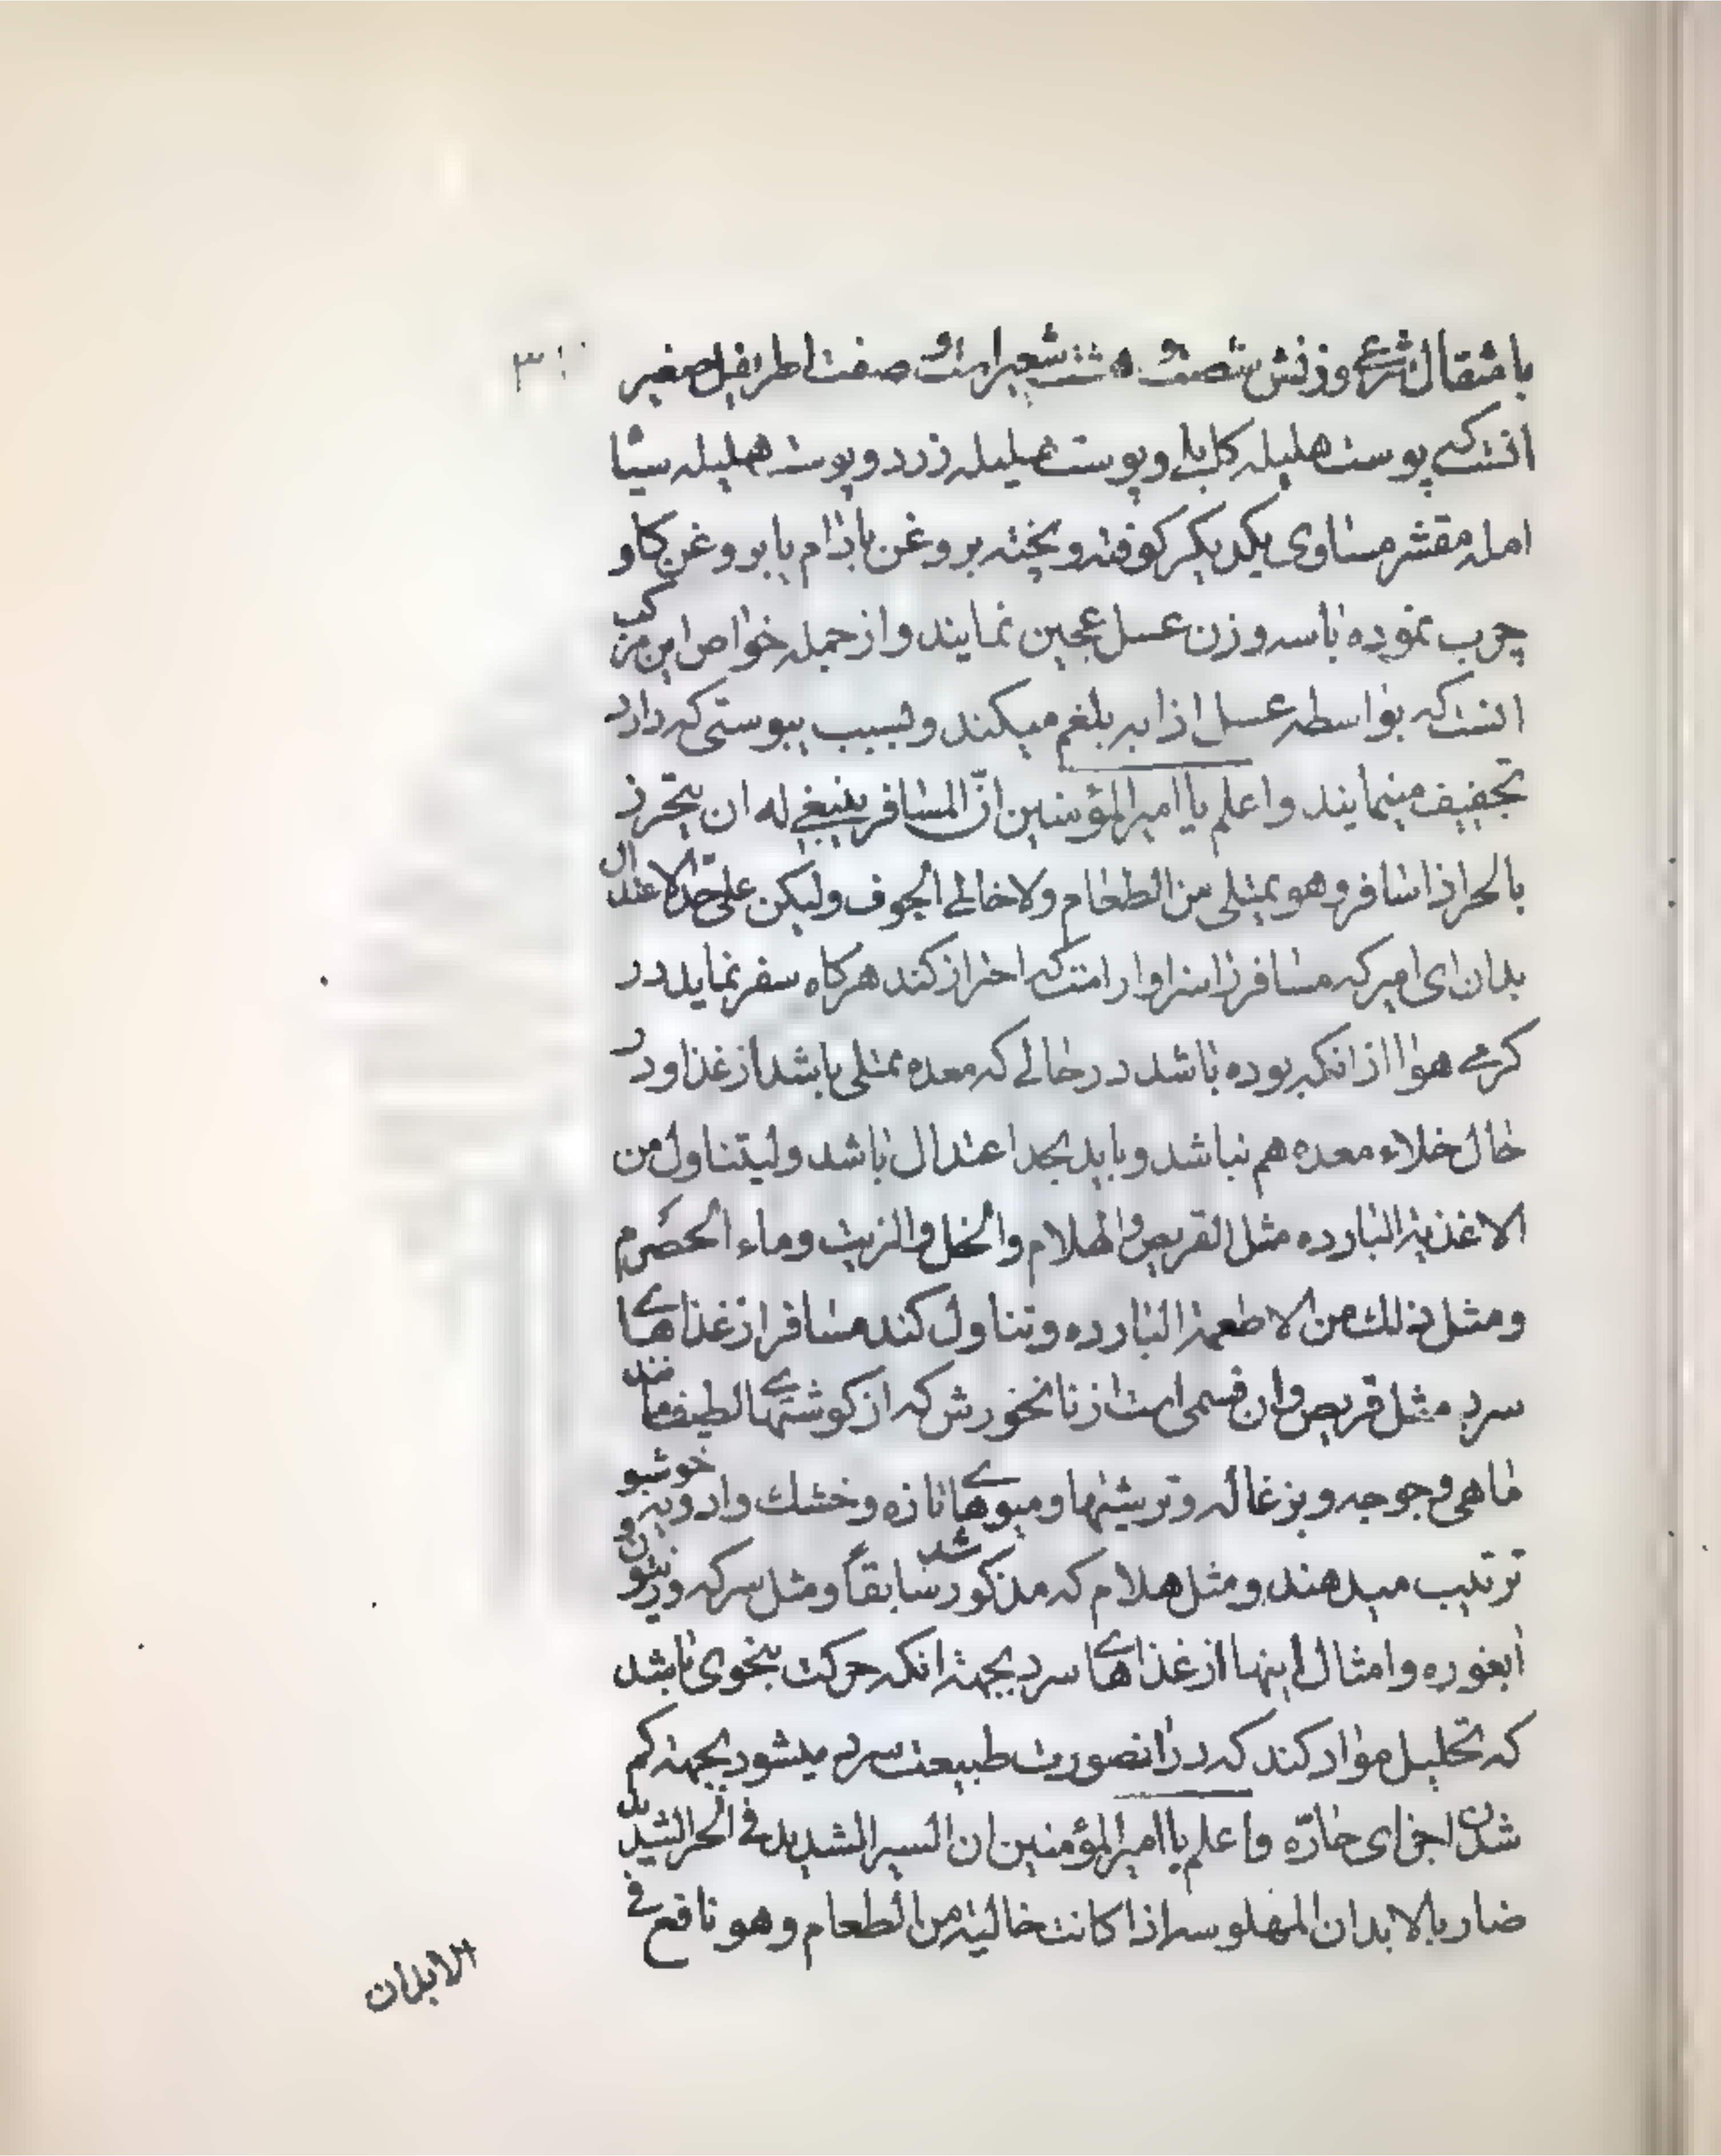 با مثقال شرعی و وزنش شصت و هشت شعیر است و صفت اطریفل صغیر
انست که پوست هلیله کابلی و پوست هلیله زرد و پوست هلیله سیاه
امله مقشر مساوی یکدیکر کوفته و بیخته بروغن بادام یا بروغن کاو
چرب نموده با سه وزن عسل عجین نمایند و از جمله خواص این مرکب
انست که بواسطه عسل اذابه بلغم میکند و بسبب یبوستی که دارد
تجفیف مینمایند واعلم یا امیرالمؤمنین انّ المسافر ینبغی له ان یتحرز
بالحر اذا سافر وهو ممتلی من الطعام ولا خالی الجوف ولیکن علی حدّ الاعتدال
بدان ای امیر که مسافر را سزاوار است که احتراز کند هرکاه سفر نماید در
کرمی هوا از انکه بوده باشد در حالی که معده ممتلی باشد از غذا و در
حال خلاء معده هم نباشد و باید بحد اعتدال باشد ولیتناول من
الاغذیة البارده مثل القریص والهلام والخل والزیت وماء الحصرم
ومثل ذلك من الاطعمة البارده و تناول کند مسافر از غذاهای
سرد مثل قریص و ان قسمی است از نانخورش که از کوشتهای لطیف مانند
ماهی و جوجه و بزغاله و ترشیها و میوهای تازه و خشك و ادویه خوشبو
ترتیب میدهند و مثل هلام که مذکور شد سابقاً و مثل سرکه و زیتون و
ابغوره و امثال اینها از غذاهای سرد بجهة انکه حرکت بنحوی باشد
که تحلیل مواد کند که در انصورت طبیعت سرد میشود بجهة کم
شدن اجزای حارّه واعلم یا امیرالمؤمنین ان السیر الشدید فی الحر الشدید
ضار بالابدان المهلوسه اذا کانت خالیة من الطعام وهو نافع فی
الابدان